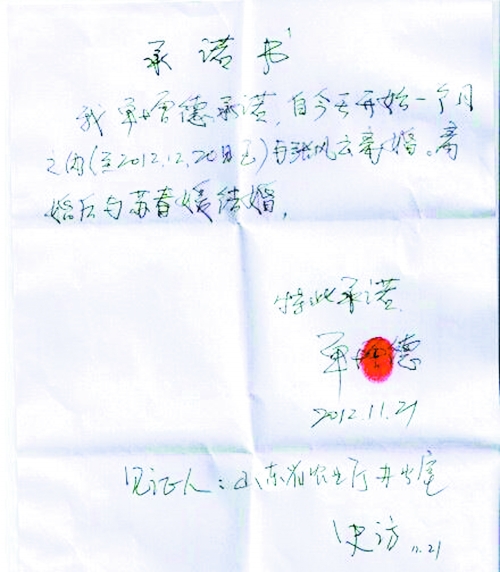 承诺书
我单增德承诺,自今天开始一个月
之内(至2012.12.20日止)与张风云离婚。离
婚后与苏春媛结婚。
特此承诺
单增德
2012.11.21
见证人:山东省农业厅办公室
史访 11.21